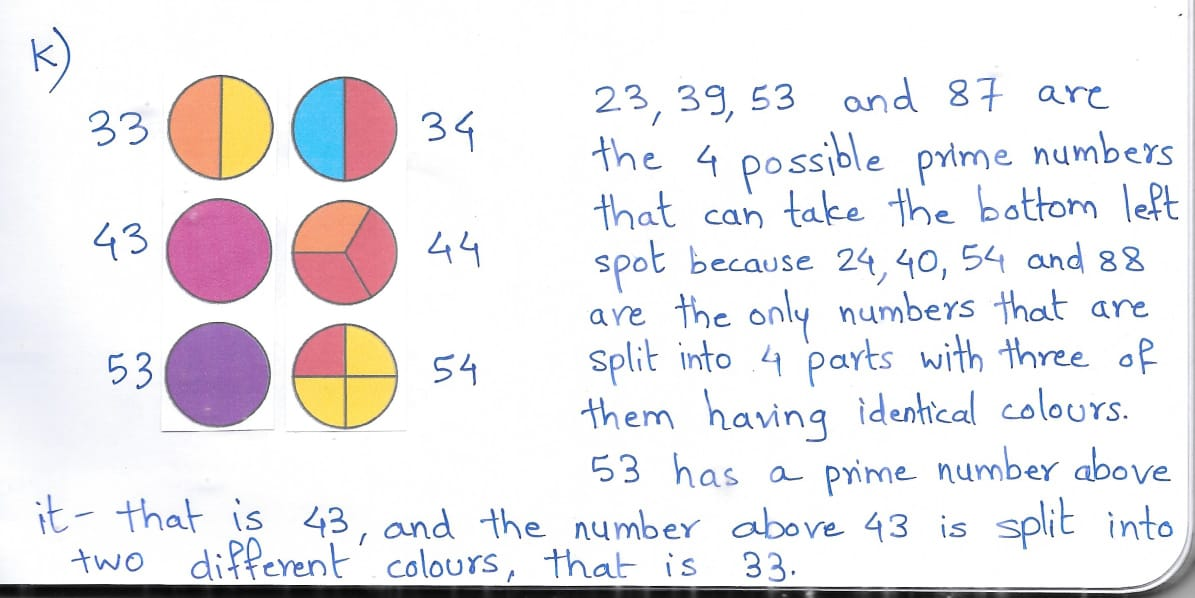 k)
33 34
43 44
53 54
23, 39, 53 and 87 are
the 4 possible prime numbers
that can take the bottom left
spot because 24, 40, 54 and 88
are the only numbers that are
split into 4 parts with three of
them having identical colours.
53 has a prime number above
it - that is 43, and the number above 43 is split into
two different colours, that is 33.